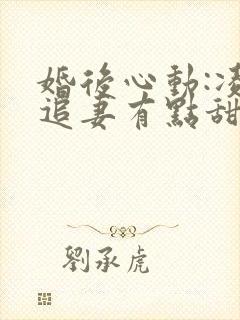 婚後心動:凌
追妻有點甜
劉承虎